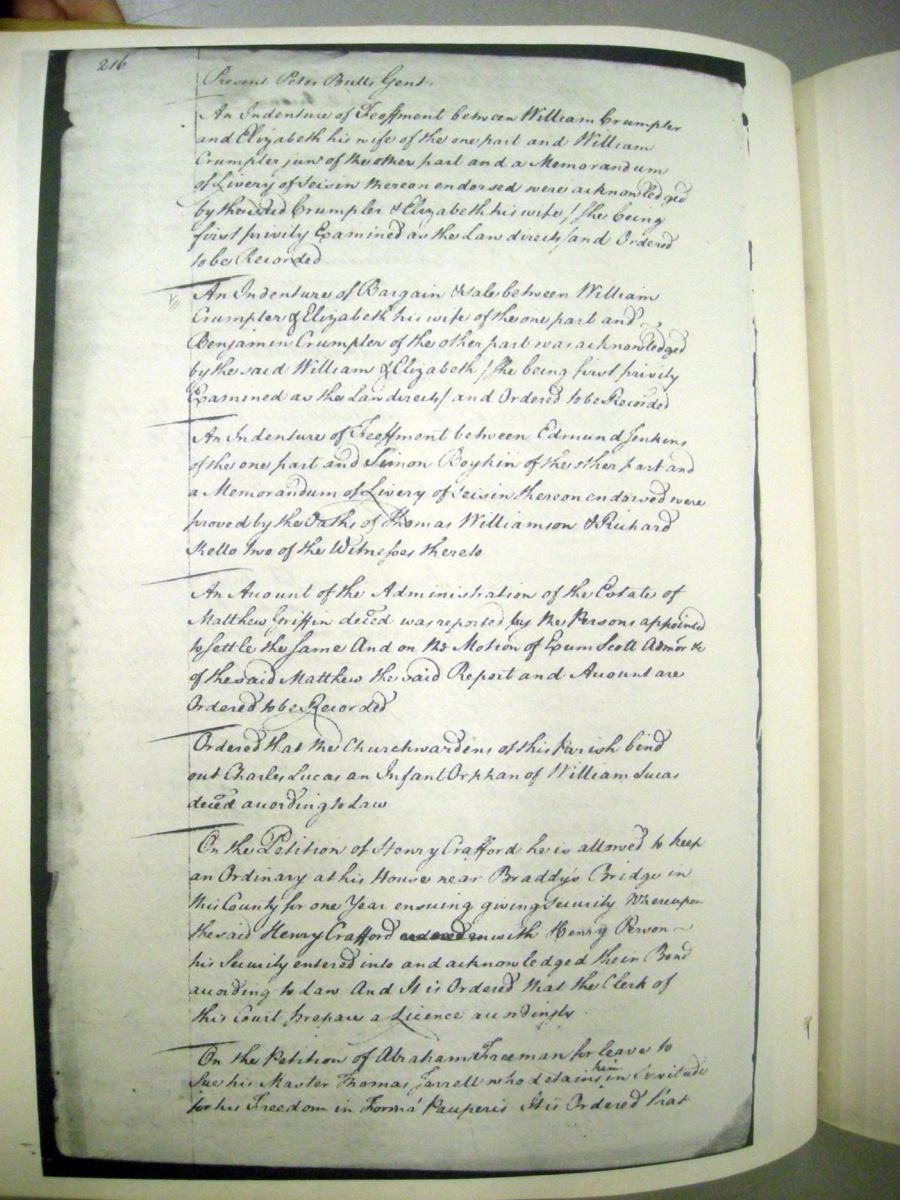 216
Present Peter Butts Gent.
An Indenture of Feoffment between William Crumpler
and Elizabeth his wife of the one part and William
Crumpler jun.r of the other part and a Memorandum
of Livery of Seisin thereon endorsed were acknowledged
by the said Crumpler & Elizabeth his wife / she being
first privily Examined as the Law directs / and Ordered
to be Recorded
An Indenture of Bargain & sale between William
Crumpler & Elizabeth his wife of the one part and
Benjamin Crumpler of the other part was acknowledged
by the said William & Elizabeth / she being first privily
Examined as the Law directs / and Ordered to be Recorded
An Indenture of Feoffment between Edmund Jenkins
of the one part and Simon Boykin of the other part and
a Memorandum of Livery of Seisin thereon endorsed were
proved by the Oaths of Thomas Williamson & Richard
Kello two of the Witnesses thereto
An Account of the Administration of the Estate of
Matthew Griffin deced was reported by the Persons appointed
to settle the same And on the Motion of Exum Scott Admor &c
of the said Matthew the said Report and Account are
Ordered to be Recorded
Ordered that the Churchwardens of this Parish bind
out Charles Lucas an Infant Orphan of William Lucas
deced according to Law
On the Petition of Henry Crafford he is allowed to keep
an Ordinary at his House near Braddy's Bridge in
this County for one Year ensuing giving security Whereupon
the said Henry Crafford with Henry Person
his Security entered into and acknowledged their Bond
according to Law And It is Ordered that the Clerk of
this Court prepare a Licence accordingly
On the Petition of Abraham Freeman for leave to
Sue his Master Thomas Jarrell who detains him in Servitude
for his Freedom in Forma' Pauperis It is Ordered that